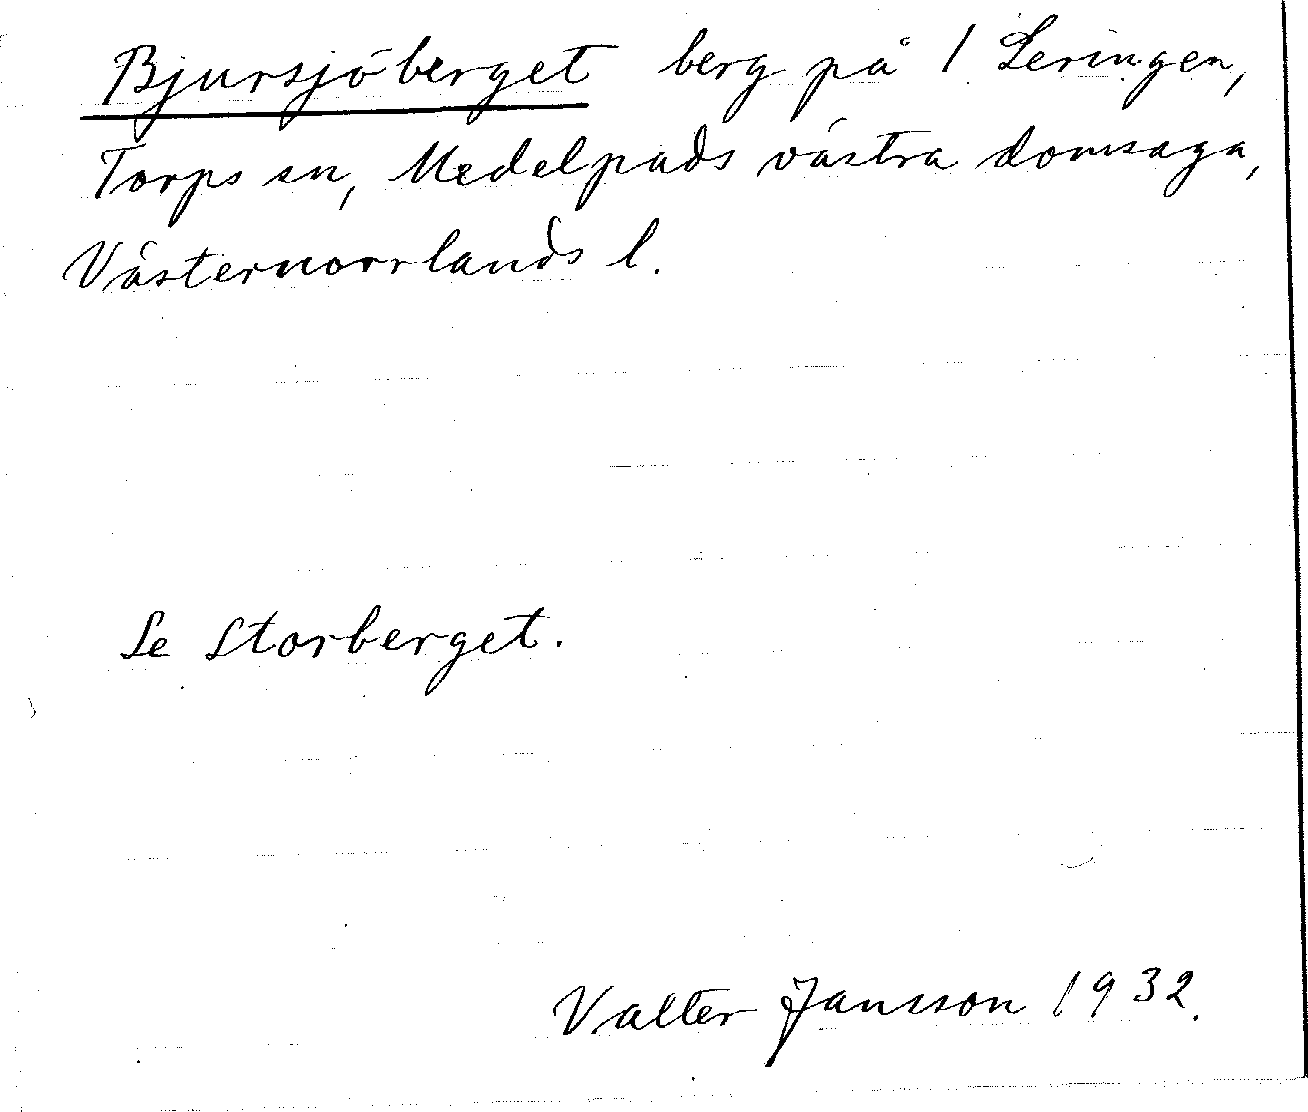 Bjursjöberget berg på 1 Leringen,
Torps sn, Medelpads västra domsaga,
Västernorrlands l.
Se Storberget.
Valter Jansson 1932.